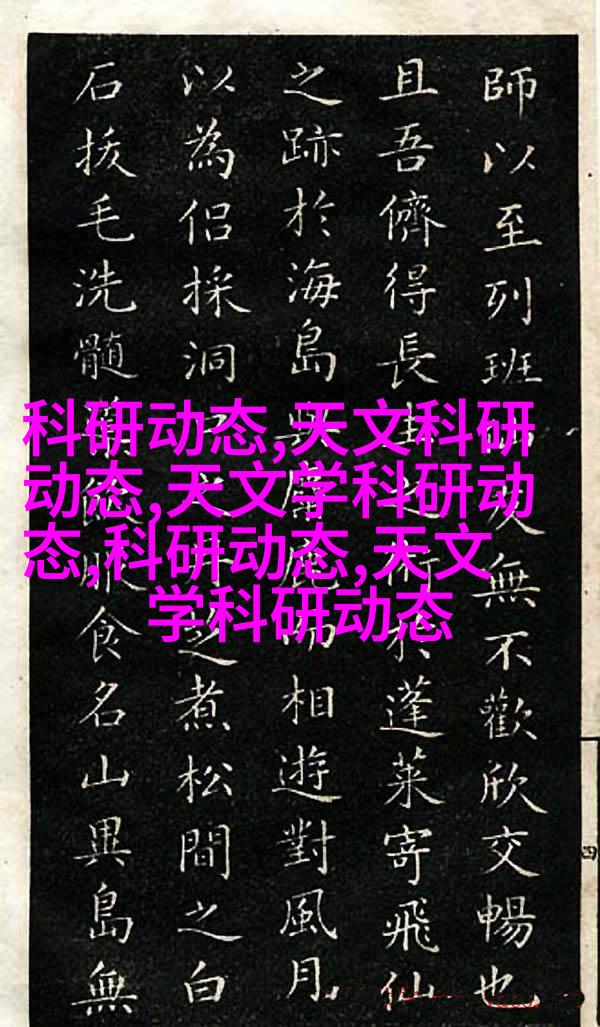 科研动态,天文科研
动态,天文学科研动
态,科研动态,天文
学科研动态
師以至列班友無不歡欣交暢也
且吾儕得長生之術於蓬萊寄飛仙
之跡於海島與麋鹿而相遊對風月
以為侶採洞之煮松間之白
石拔毛洗髓服食名山異島無